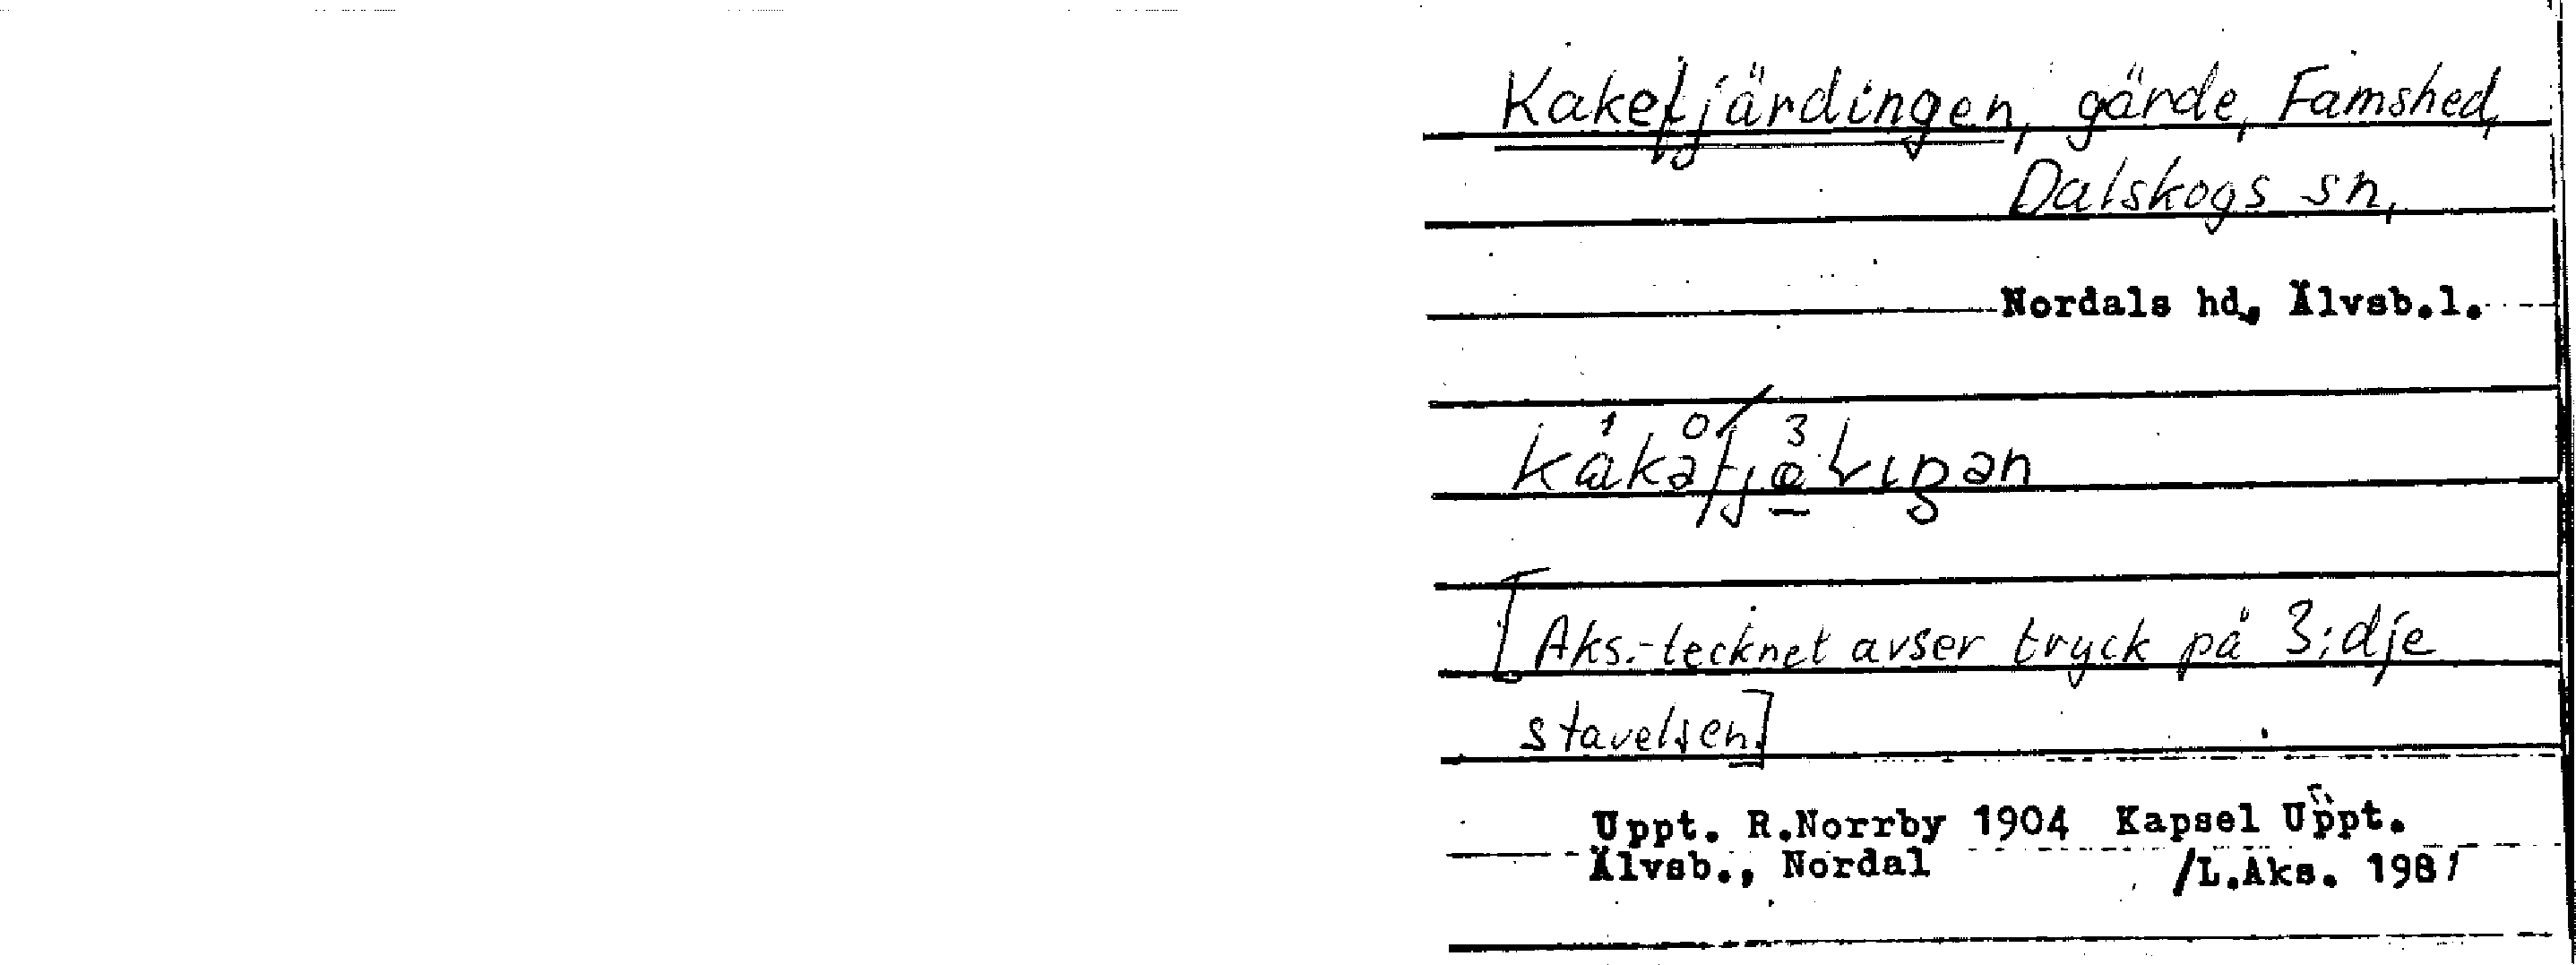 Kakefjärdingen, gärde, Famshed,
Dalskogs sn,
Nordals hd, Älvsb.l.
[Aks.-tecknet avser tryck på 3:dje
stavelsen]
Uppt. R.Norrby 1904 Kapsel Uppt.
Älvsb., Nordal /L.Aks. 1981